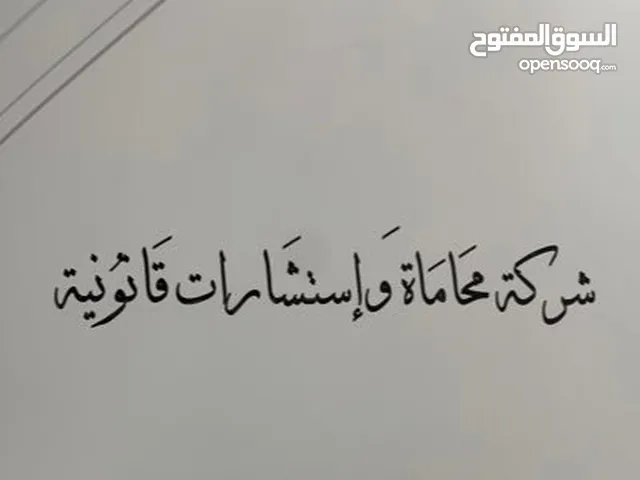 السوق المفتوح
opensooq.com
شركة محَامَاة وَإستشَارات قَانوُنية